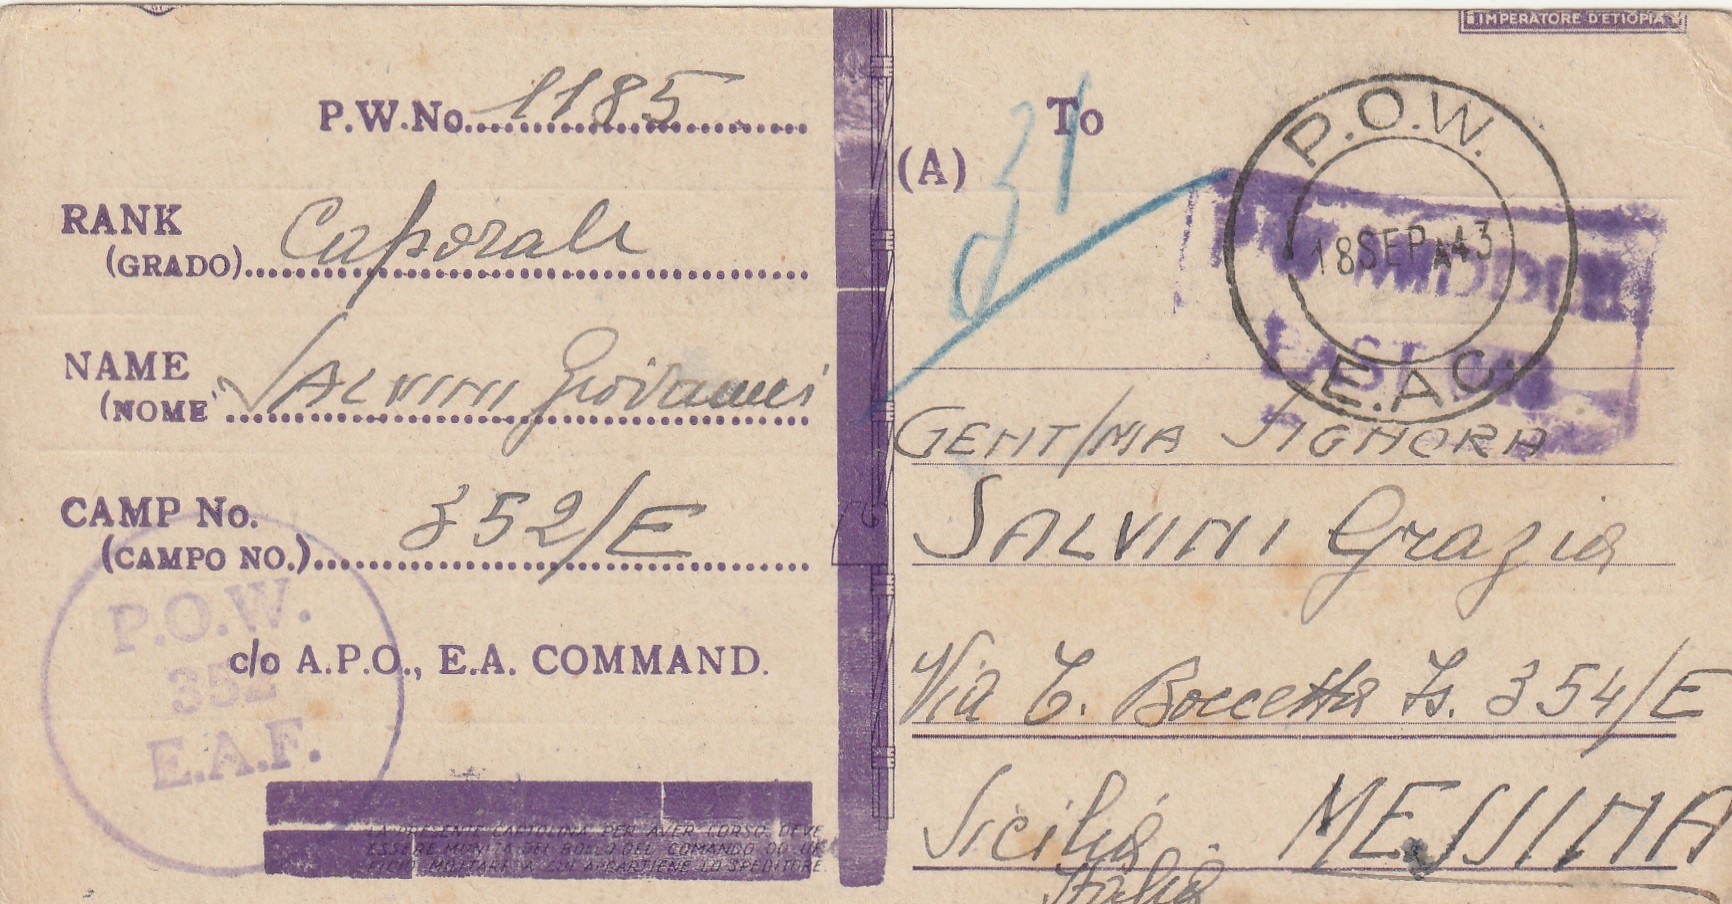 P.W.No. 1185
RANK
(GRADO) Caporale
NAME
(NOME) SALVINI Giovanni
CAMP No.
(CAMPO NO.) 352/E
c/o A.P.O., E.A. COMMAND.
P.O.W.
352
E.A.F.
LA PRESENTE CARTOLINA PER AVER CORSO DEVE
ESSERE MUNITA DEL BOLLO DEL COMANDO OD UF
FICIO MILITARE A CUI APPARTIENE LO SPEDITORE
IMPERATORE D'ETIOPIA
To
(A)
31
P.O.W.
18 SEP A 43
E.A.C.
MIDDLE
EAST
GENT/MA SIGNORA
SALVINI Grazia
Via T. Boccetta Is. 354/E
Sicilia. MESSINA
Italia